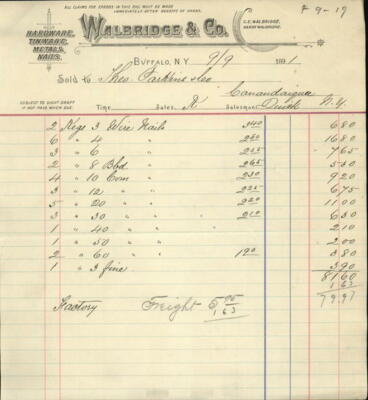 ALL CLAIMS FOR ERRORS IN THIS BILL MUST BE MADE
IMMEDIATELY AFTER RECEIPT OF GOODS.
8-9-17
HARDWARE,
TINWARE,
METALS,
NAILS.
WALBRIDGE & CO.
C.E. WALBRIDGE,
HARRY WALBRIDGE.
BUFFALO, N.Y. 9/9 1891
Sold to Thos Parkins & Co
Canandaigua
SUBJECT TO SIGHT DRAFT
IF NOT PAID WHEN DUE
Time, Sales, Salesman N.Y.
2 Kegs 3 Wire Nails 340 680
6 " 4 " 280 1680
3 " 6 " 255 765
2 " 8 Bbd " 265 530
4 " 10 Com " 230 920
3 " 12 " 225 675
5 " 20 " 220 1100
3 " 30 " 210 630
1 " 40 " 210
1 " 50 " 200
2 " 60 " 190 380
1 " 3 fine 390
8160
163
7997
Factory Freight
163